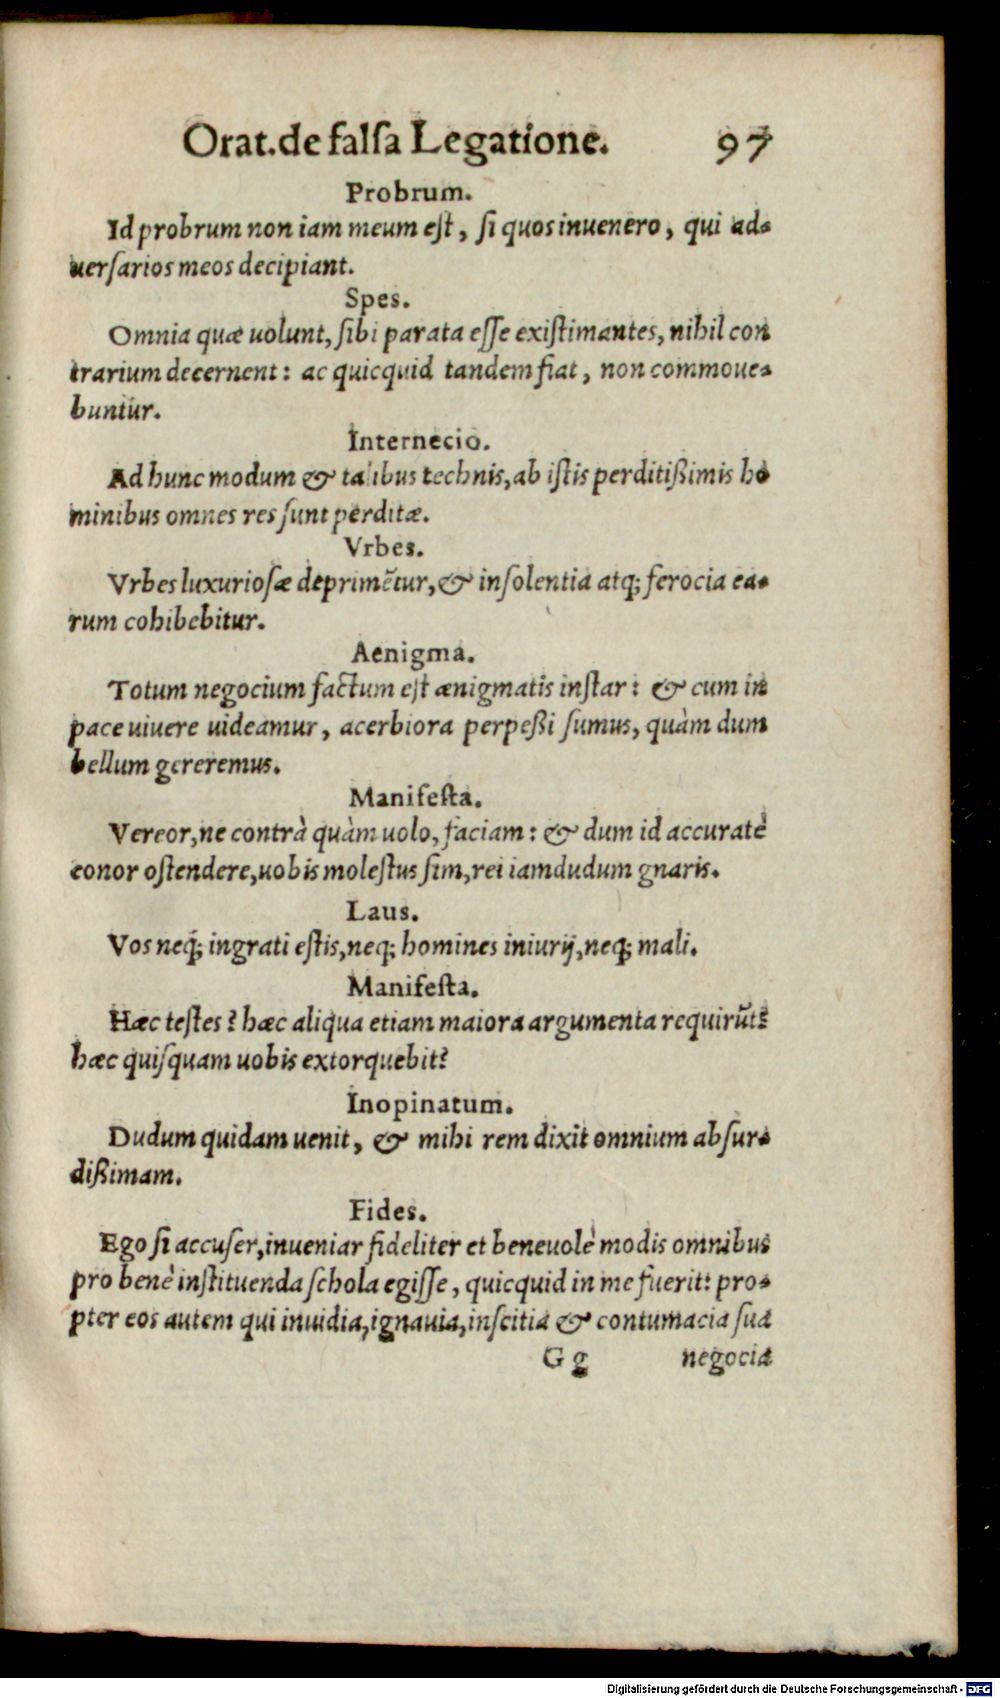 Orat. de falsa Legatione. 97
Probrum.
Id probrum non iam meum est, si quos inuenero, qui ad-
uersarios meos decipiant.
Spes.
Omnia quæ uolunt, sibi parata esse existimantes, nihil con
trarium decernent: ac quicquid tandem fiat, non commoue-
buntur.
Internecio.
Ad hunc modum & talibus technis, ab istis perditißimis ho
minibus omnes res sunt perditæ.
Vrbes.
Vrbes luxuriosæ deprimẽtur, & insolentia atq; ferocia ea-
rum cohibebitur.
Aenigma.
Totum negocium factum est ænigmatis instar: & cum in
pace uiuere uideamur, acerbiora perpeßi sumus, quàm dum
bellum gereremus.
Manifesta.
Vereor, ne contrà quàm uolo, faciam: & dum id accuratè
conor ostendere, uobis molestus sim, rei iamdudum gnaris.
Laus.
Vos neq; ingrati estis, neq; homines iniurij, neq; mali.
Manifesta.
Hæc testes? hæc aliqua etiam maiora argumenta requirũt?
hæc quisquam uobis extorquebit?
Inopinatum.
Dudum quidam uenit, & mihi rem dixit omnium absur-
dißimam.
Fides.
Ego si accuser, inueniar fideliter et beneuolè modis omnibus
pro benè instituenda schola egisse, quicquid in me fuerit: pro-
pter eos autem qui inuidia, ignauia, inscitia & contumacia sua
G g negocia
Digitalisierung gefördert durch die Deutsche Forschungsgemeinschaft - DFG